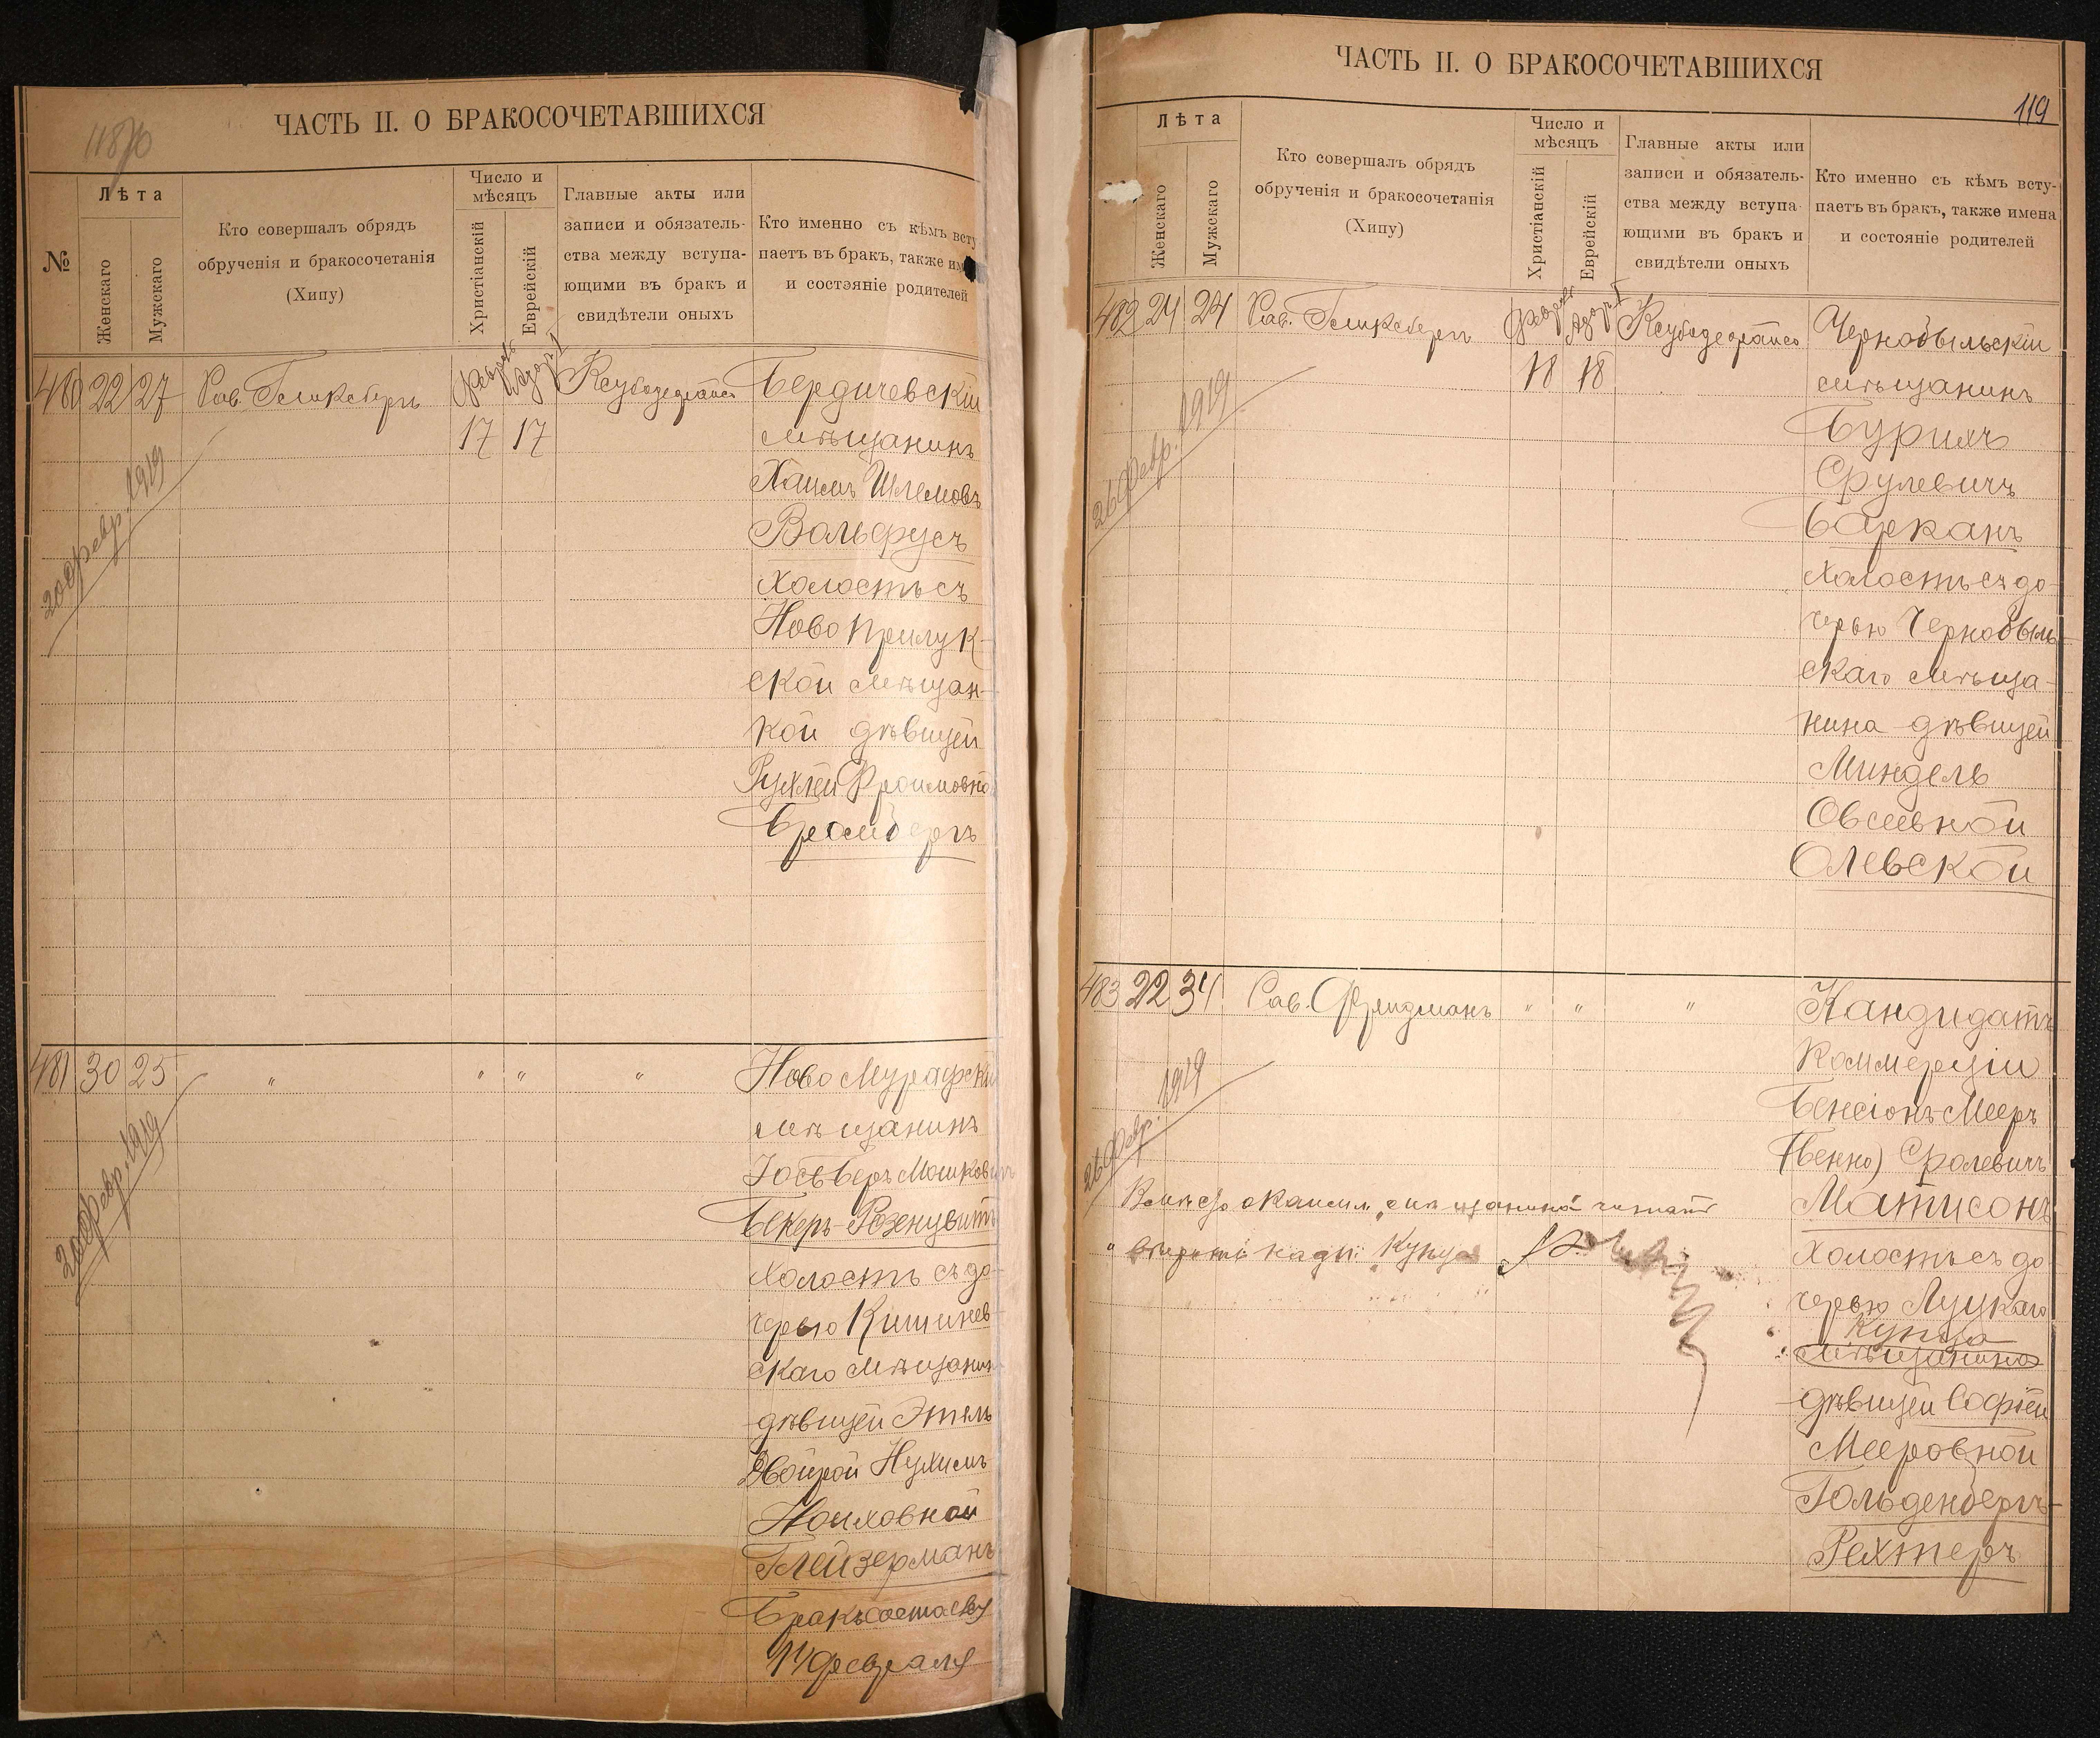 118/0
ЧАСТЬ II. О БРАКОСОЧЕТАВШИХСЯ
№
Лѣта
Женскаго
Мужскаго
Кто совершалъ обрядъ
обрученія и бракосочетанія
(Хипу)
Число и
мѣсяцъ
Христіанскій
Еврейскій
Главные акты или
записи и обязатель-
ства между вступа-
ющими въ бракъ и
свидѣтели оныхъ
Кто именно съ кѣмъ всту
паетъ въ бракъ, также им
и состояніе родителей
480 22 27 Рав. Гликсбергъ
17 17
20 февр. 1919
Бердичевскій
мѣщанинъ
Хаимъ Шлемовъ
Вольфусъ
холостъ съ
Ново Прилук-
ской мѣщан-
кой дѣвицей
Рухлей Фроимовно
Бромбергъ
481 30 25 " " " "
20 февр. 1919
Ново Мурафскій
мѣщанинъ
Іось Беръ Мошкович
Бекеръ-Розенцвитъ
холостъ съ до-
черью Кишинев-
скаго мѣщанин
дѣвицей Этель
Двойрой Нухимъ
Ноиховной
Глейзерманъ
Бракъ состоялся
14 февраля
ЧАСТЬ II. О БРАКОСОЧЕТАВШИХСЯ
119
Лѣта
Женскаго
Мужскаго
Кто совершалъ обрядъ
обрученія и бракосочетанія
(Хипу)
Число и
мѣсяцъ
Христіанскій
Еврейскій
Главные акты или
записи и обязатель-
ства между вступа-
ющими въ бракъ и
свидѣтели оныхъ
Кто именно съ кѣмъ всту-
паетъ въ бракъ, также имена
и состояніе родителей
482 24 24 Рав. Гликсбергъ
18 18
26 февр. 1919
Чернобыльскій
мѣщанинъ
Бурихъ
Срулевичъ
Барканъ
холостъ съ до-
черью Чернобыль-
скаго мѣща-
нина дѣвицей
Миндель
Овсеевной
Олевской
483 22 34 Рав. Фридманъ " " "
26 февр. 1919
Кандидатъ
Коммерціи
Бенсіонъ Мееръ
(Бенно) Сролевичъ
Матисонъ
холостъ съ до-
черью Луцкаго
купца
мѣщанина
дѣвицей Софіей
Мееровной
Гольденбергъ-
Рехтеръ